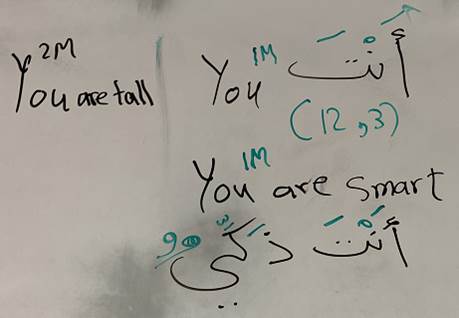 2M
You are tall
1M
You أَنْتَ
(12,3)
1M
You are smart
أَنْتَ ذَكِي